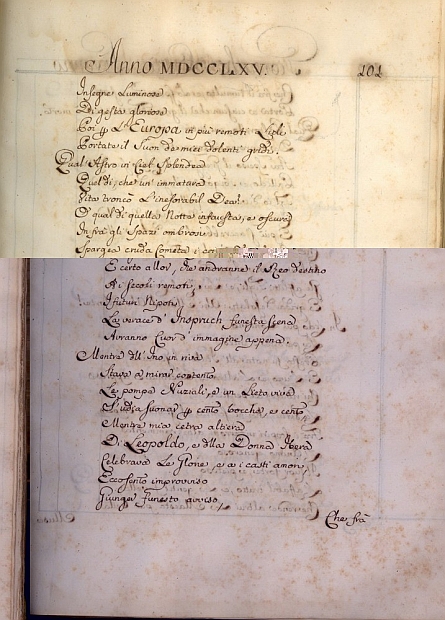 Anno MDCCLXV.
101
Insegne Luminose
Di gesta gloriose
Poi p L'Europa in piu remoti
Portate il Suon de miei dolenti gridi.
Qual Astro in Ciel Splendea
Quel di, che un' immatura
Vita troncò L'inesorabil Dea!
O qual di quella Notte infausta, e oscura
Infrà gli Spazi ombrosi
Spargea cruda Cometa i
E certo allor, che andranne il Reo destino
Ai secoli remoti,
I futuri Nipoti
La verace d' Inspruch funesta Scena
Avranno Cuor d' immagine appena.
Mentre dll' Ino in riva
Stava a mirar contento
Le pompe Nuziali, e un Lieta viva
S' udia suonar p cento bocche, e cento
Mentre mia cetra altera
Di Leopoldo, e dlla Donna Ibera
Celebrava Le Glorie, e a i casti amori
Ecco sento improvviso
Giunger funesto avviso,
Che frà